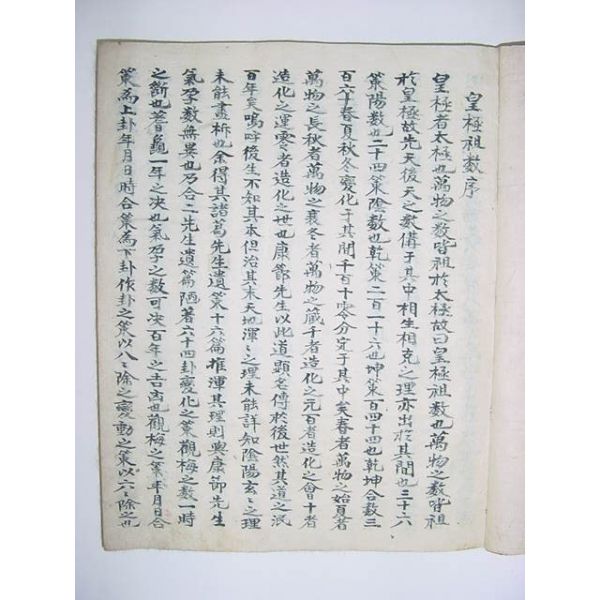 皇極祖数序
皇極者太極也萬物之数皆祖於太極故曰皇極祖数也萬物之数皆祖
於皇極故先天後天之数俻于其中相生相克之理亦出於其間也三十六
策陽数也二十四策陰数也乾策二百一十六也坤策百四十四也乾坤合数三
百六十春夏秋冬變化于其間千百十零分定于其中矣春者萬物之始夏者
萬物之長秋者萬物之衰冬者萬物之藏千者造化之元百者造化之會十者
造化之運零者造化之世也康節先生以此道顕名傳於後世然其道之泯
百年矣嗚呼後生不知其本但治其末天地渾〻之理未能詳知陰陽玄〻之理
未能畫析也余得其諸葛先生遺策十六篇推渾其理則與康節先生
氣孕数無異也乃合二先生遺篇陋著六十四卦變化之策觀梅之数一時
之断也蓍龜一年之决也氣孕之数可决百年之吉凶也觀梅之策年月日合
策為上卦年月日時合策為下卦作卦之策以八〻除之變動之策以六〻除之也